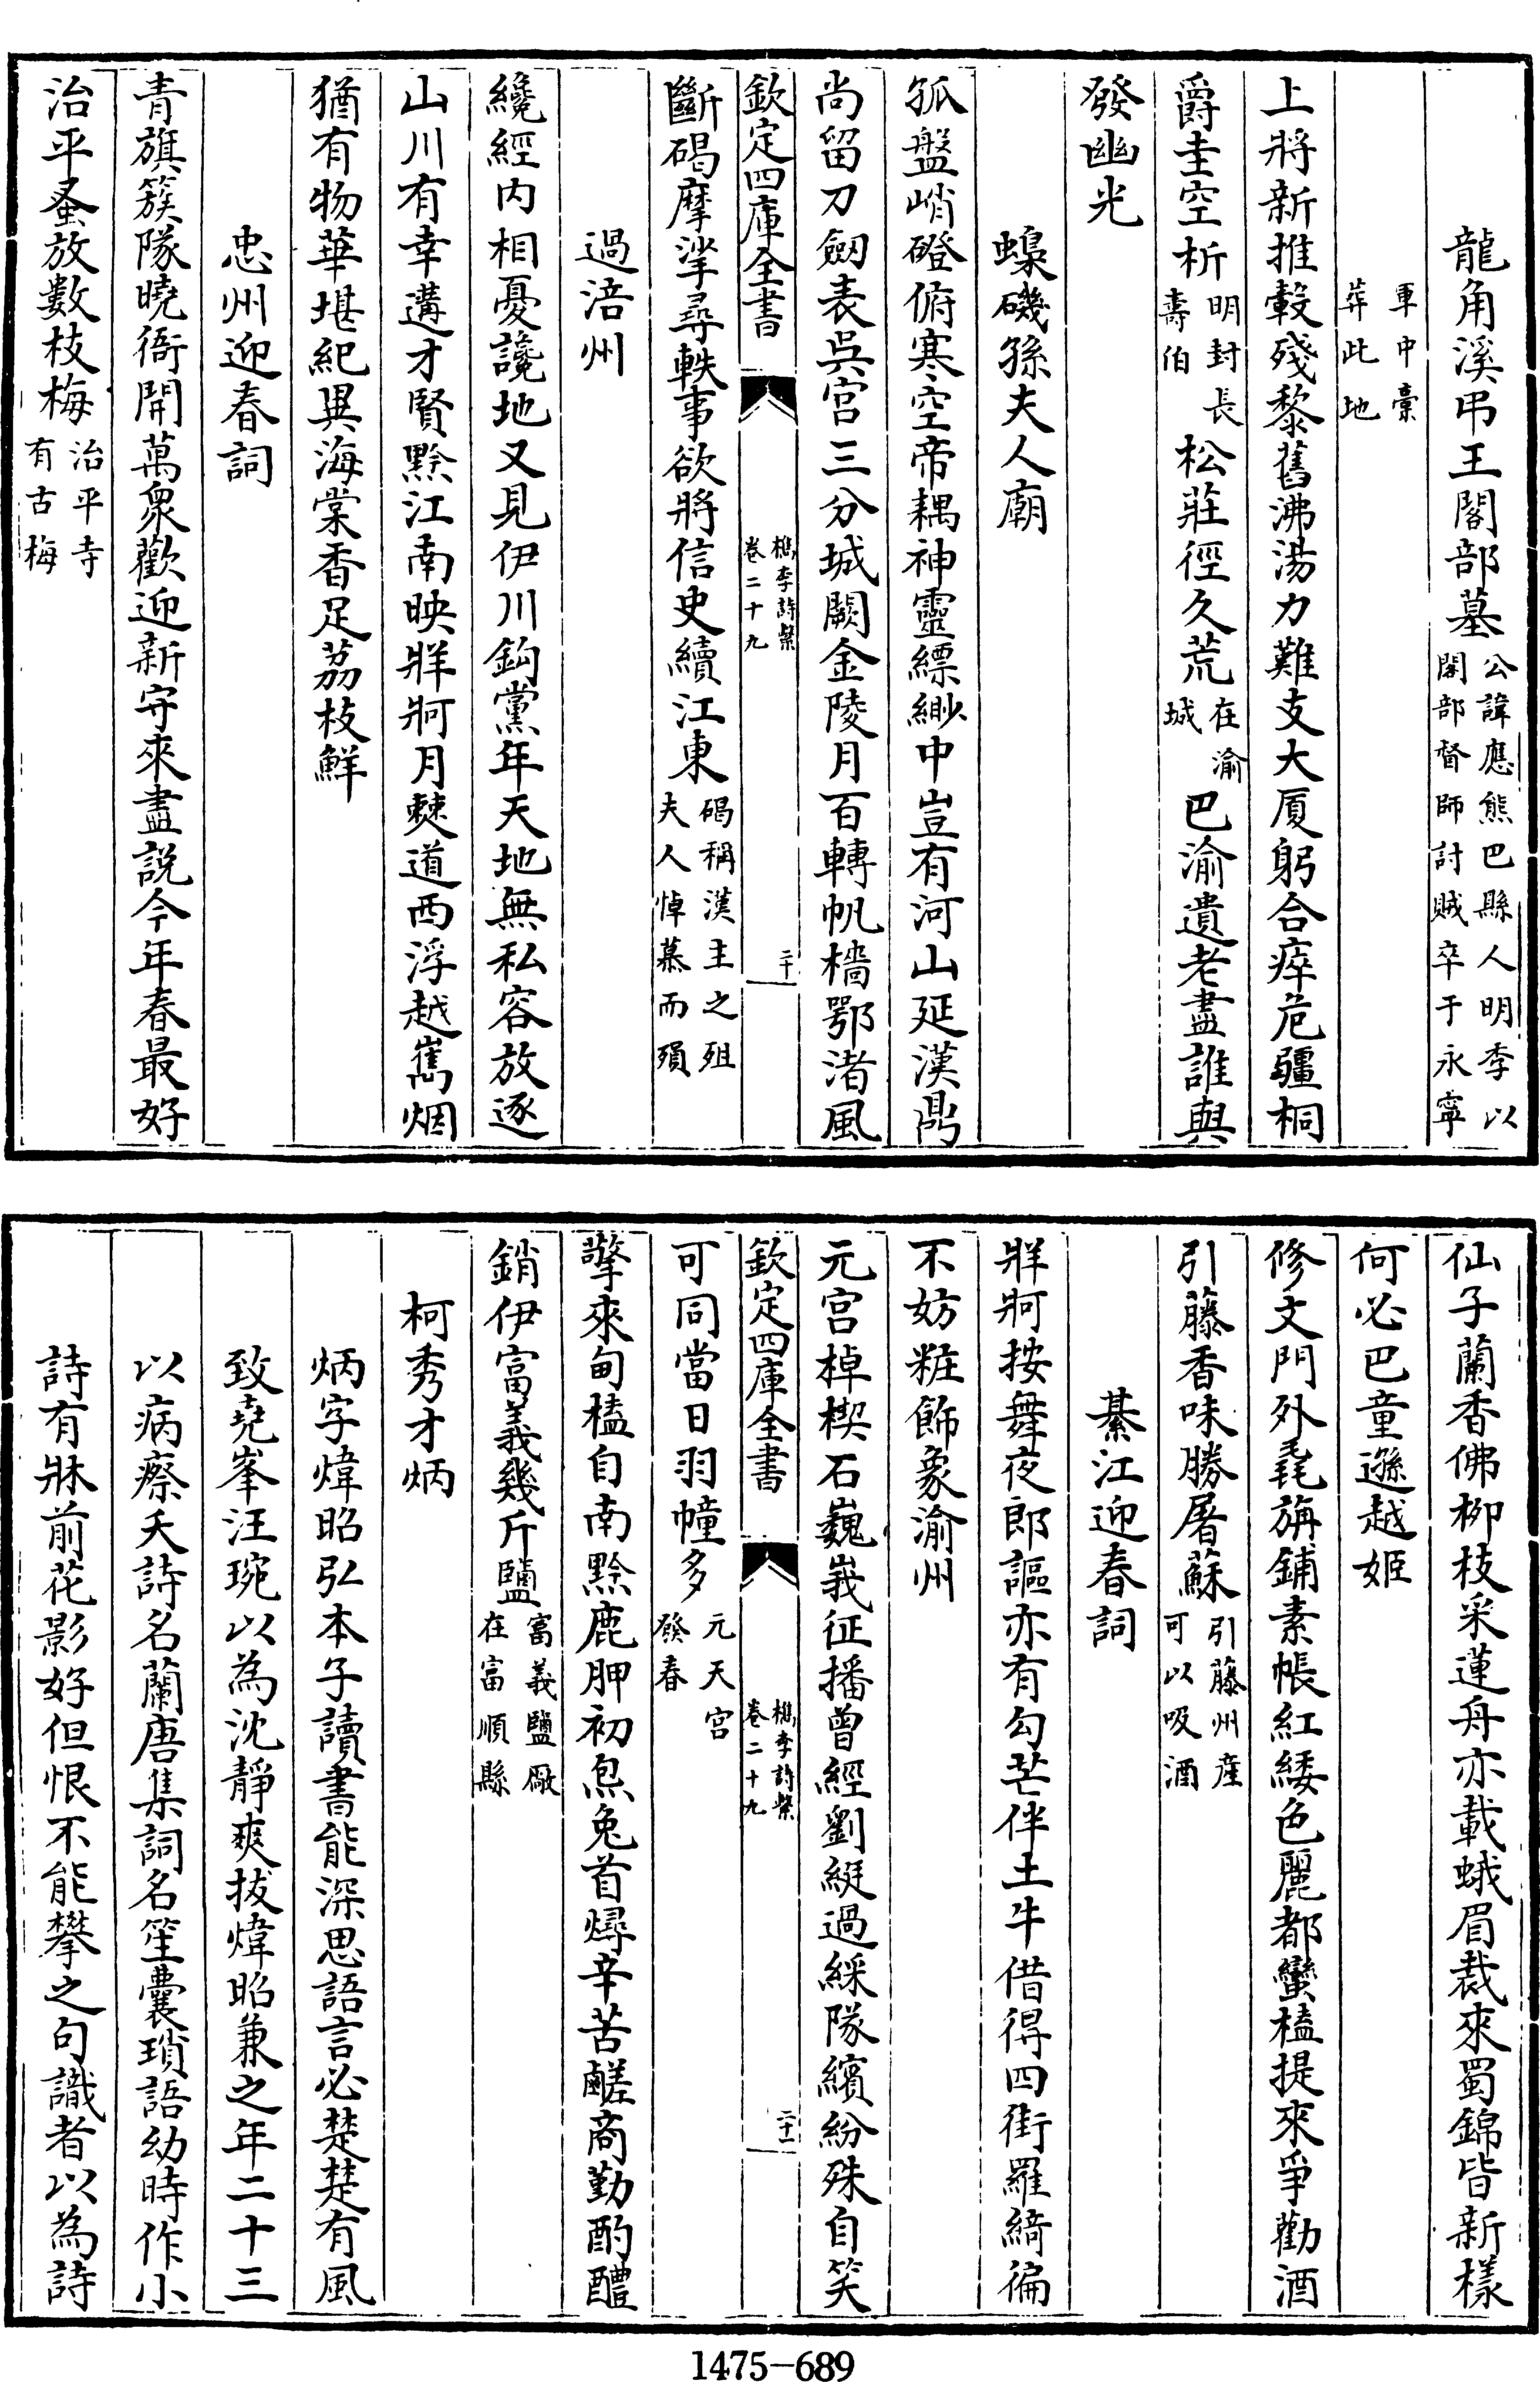 龍角溪弔王閣部墓公諱應熊巴縣人明季以閣部督師討賊卒于永寧
軍中藁葬此地
上將新推轂殘黎舊沸湯力難支大厦躬合瘁危疆桐
爵圭空析明封長壽伯松莊徑久荒在渝城巴渝遺老盡誰與
發幽光
蟂磯孫夫人廟
孤盤峭磴俯寒空帝耦神靈縹緲中豈有河山延漢鼎
尚留刀劒表吳宫三分城闕金陵月百轉帆檣鄂渚風
欽定四庫全書 檇李詩繫卷二十九 二十
斷碣摩挲尋軼事欲將信史續江東碣稱漢主之殂夫人悼慕而殞
過涪州
纔經内相憂讒地又見伊川鈎黨年天地無私容放逐
山川有幸遘才賢黔江南映牂牁月僰道西浮越嶲烟
猶有物華堪紀異海棠香足荔枝鮮
忠州迎春詞
青旗簇隊曉衙開萬衆歡迎新守來盡說今年春最好
治平蚤放數枝梅治平寺有古梅
仙子蘭香佛柳枝采蓮舟亦載蛾眉裁來蜀錦皆新樣
何必巴童遜越姬
修文門外毳旃鋪素帳紅緌色麗都蠻榼提來爭勸酒
引藤香味勝屠蘇引藤州産可以吸酒
綦江迎春詞
牂牁按舞夜郎謳亦有勾芒伴土牛借得四街羅綺徧
不妨粧飾象渝州
元宫棹楔石巍峩征播曾經劉綎過綵隊繽紛殊自笑
欽定四庫全書 檇李詩繫卷二十九 二十一
可同當日羽幢多元天宫發春
擎來匈榼自南黔鹿胛初炰兔首燖辛苦鹺商勤酌醴
銷伊富義幾斤鹽富義鹽廠在富順縣
柯秀才炳
炳字煒昭弘本子讀書能深思語言必楚楚有風
致堯峯汪琬以為沈靜爽拔煒昭兼之年二十三
以病瘵夭詩名蘭唐集詞名笙囊瑣語幼時作小
詩有牀前花影好但恨不能攀之句識者以為詩
1475-689